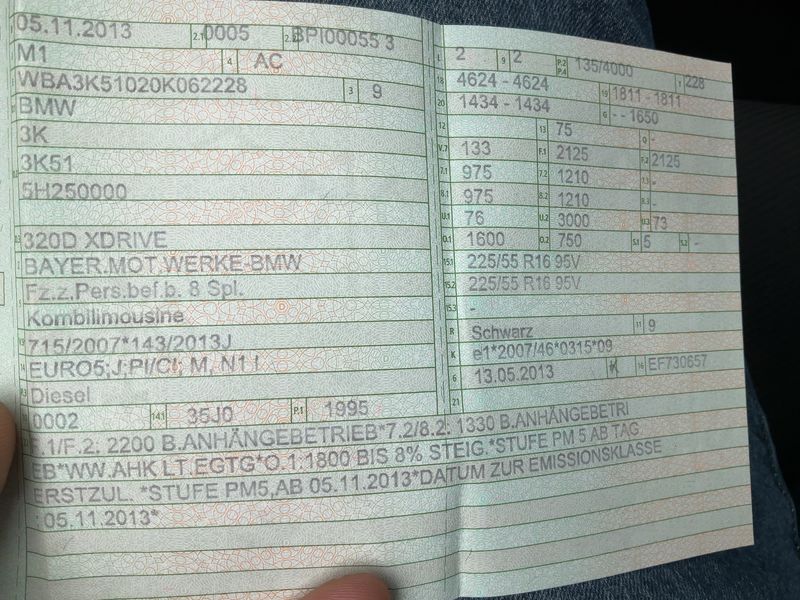 05.11.2013 2.1 0005 2.2 BPI00055 3
M1 4 AC
WBA3K51020K062228 3 9
BMW
3K
3K51
5H250000
320D XDRIVE
BAYER.MOT.WERKE-BMW
Fz.z.Pers.bef.b. 8 Spl.
Kombilimousine
715/2007*143/2013J
EURO5;J;PI/CI; M, N1 I
Diesel
0002 14.1 35J0 P.1 1995
L 2 9 2 P.2 P.4 135/4000 T 228
18 4624 - 4624 19 1811 - 1811
20 1434 - 1434 G - - 1650
12 13 75 Q -
V.7 133 F.1 2125 F.2 2125
7.1 975 7.2 1210 7.3 -
8.1 975 8.2 1210 8.3 -
U.1 76 U.2 3000 U.3 73
O.1 1600 O.2 750 S.1 5 S.2 -
15.1 225/55 R16 95V
15.2 225/55 R16 95V
15.3 -
R Schwarz 11 9
K e1*2007/46*0315*09
6 13.05.2013 K 16 EF730657
21
F.1/F.2: 2200 B.ANHÄNGEBETRIEB*7.2/8.2: 1330 B.ANHÄNGEBETRI
EB*WW.AHK LT.EGTG*O.1:1800 BIS 8% STEIG.*STUFE PM 5 AB TAG
ERSTZUL. *STUFE PM5,AB 05.11.2013*DATUM ZUR EMISSIONSKLASSE
: 05.11.2013*